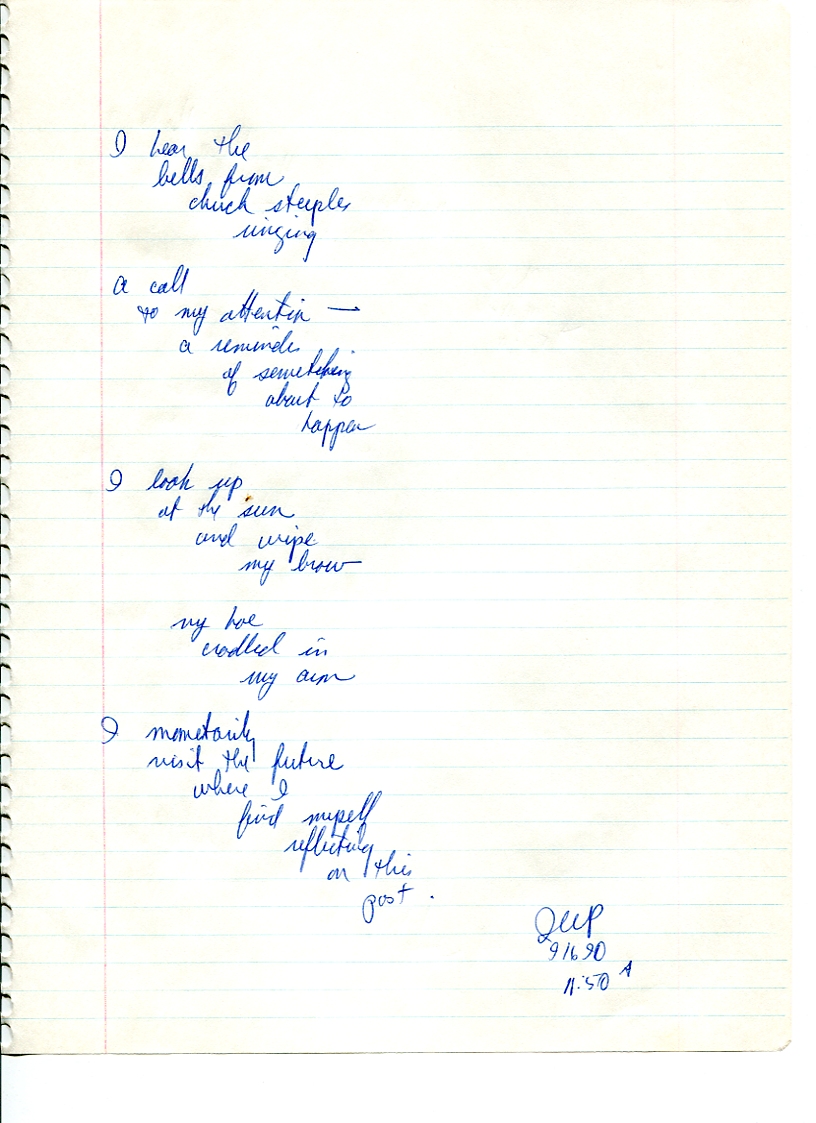 I hear the
bells from
chuch steeples
ringing
a call
to my attention —
a reminder
of something
about to
happen
I look up
at the sun
and wipe
my brow
my hoe
cradled in
my arm
I mometarily
visit the future
where I
find myself
reflecting
on this
past.
9/6 90
11:50 A